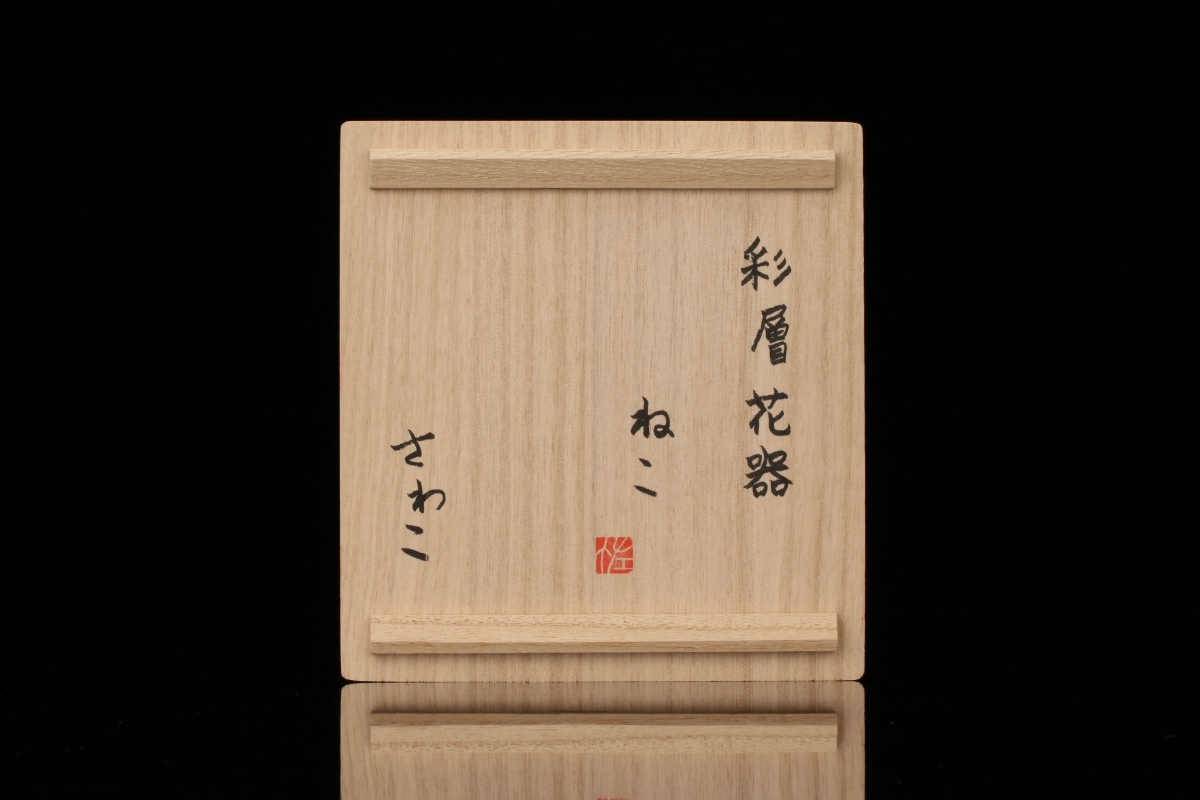 彩層花器
ねこ
佐
さわこ